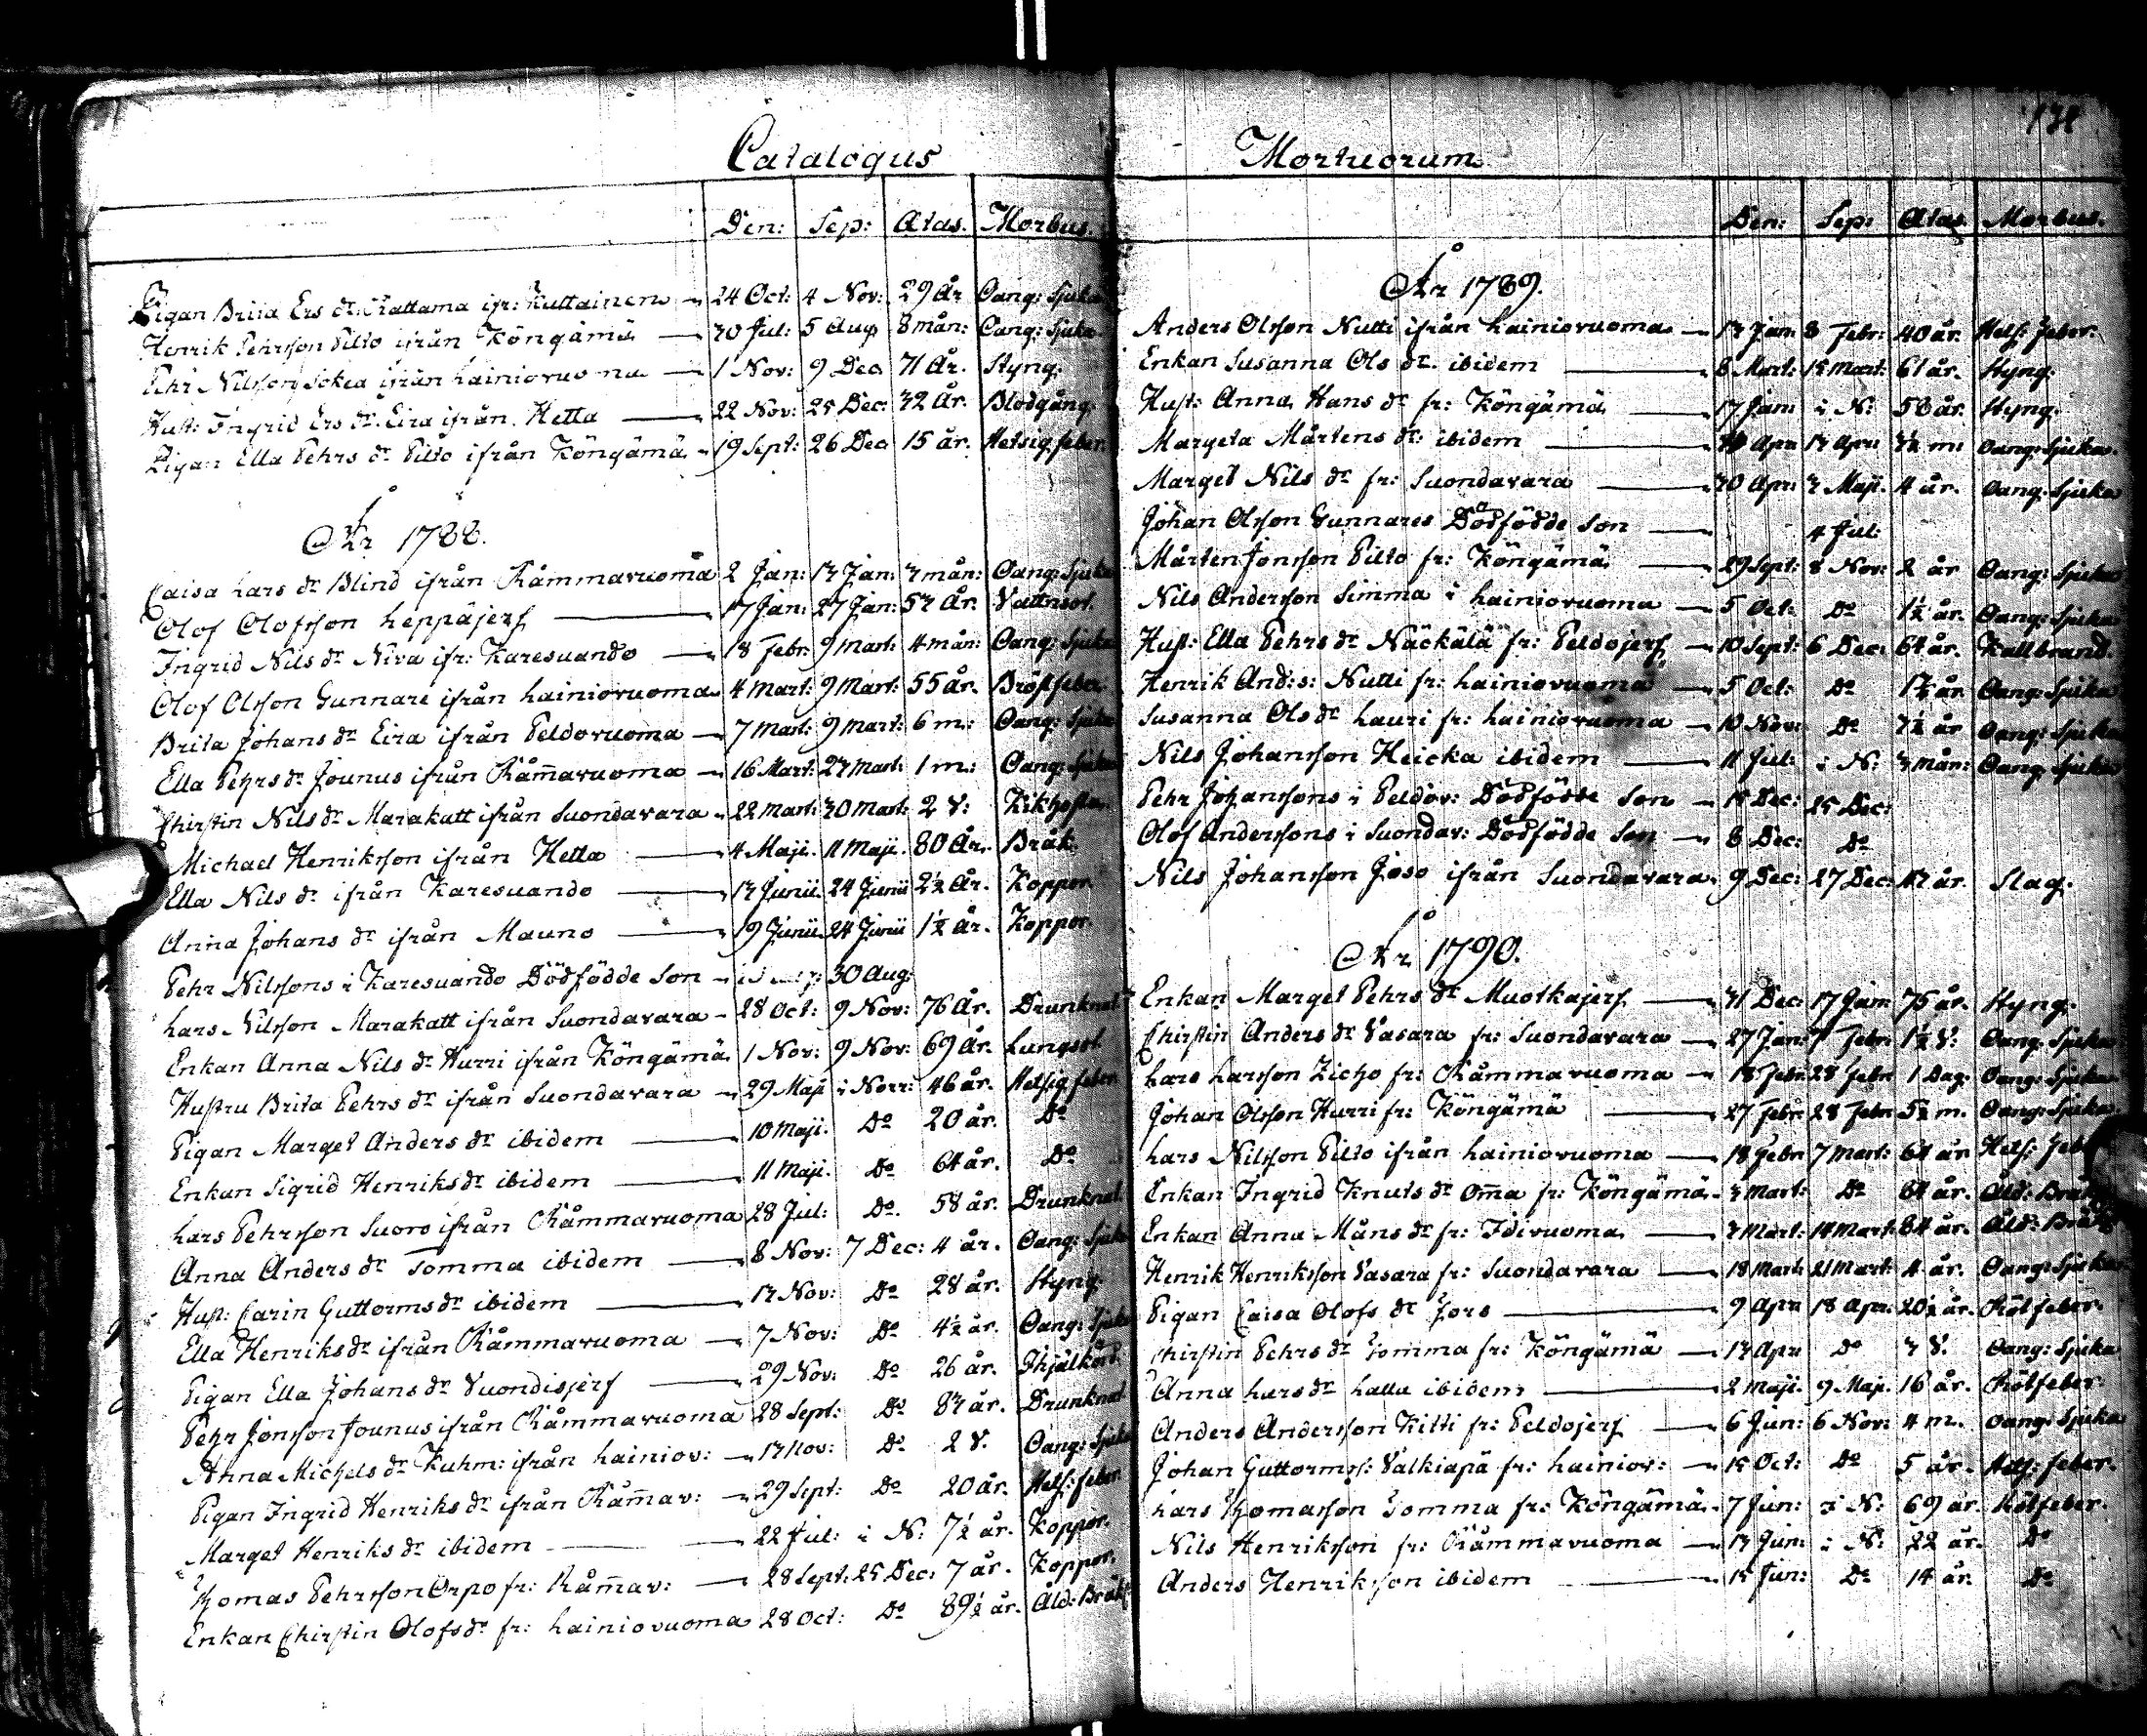 Catalogus
Den: Sep: Ætas. Morbus.
Pigan Brita Ers dr. Rattama ifr: Kuttainen 24 Oct: 4 Nov: 29 År Oang: Sjuka
Henrik Pehrsson Pilto ifrån Köngämä 30 Jul: 5 Aug 8 mån: Oang: Sjuka
Pehr Nilsson Sokea ifrån Lainiovuoma 1 Nov: 9 Dec 71 År. Styng.
Hust: Ingrid Ers dr. Eira ifrån Hetta 22 Nov: 25 Dec: 32 År. Blodgång.
Pigan Ella Pehrs dr Pilto ifrån Köngämä 19 Sept: 26 Dec 15 år. Hetsig feber.
År 1788.
Caisa Lars dr Blind ifrån Råmmavuoma 2 Jan: 13 Jan: 3 mån: Oang: Sjuka
Olof Olofsson Leppäjerf 17 Jan: 27 Jan: 53 År. Vattnsot.
Ingrid Nils dr Niva ifr: Karesuando 18 Febr: 9 Mart: 4 mån: Oang: Sjuka
Olof Olsson Gunnare ifrån Lainiovuoma 4 Mart: 9 Mart: 55 år. Bröstfeber.
Brita Johans dr Eira ifrån Peldovuoma 7 Mart: 9 Mart: 6 m: Oang: Sjuka
Ella Pehrs dr Jounus ifrån Råm̄avuoma 16 Mart: 23 Mart: 1 m: Oang: Sjuka
Chirstin Nils dr Marakatt ifrån Suondavara 22 Mart: 30 Mart: 2 V: Kikhosta.
Michael Henriksson ifrån Hetta 4 Maji. 11 Maji. 80 År. Bråk.
Ella Nils dr ifrån Karesuando 13 Junii. 24 Junii 2½ År. Koppor.
Anna Johans dr ifrån Mauno 19 Junii. 24 Junii 1½ År. Koppor.
Pehr Nilssons i Karesuando Dödfödde Son 30 Aug:
Lars Nilsson Marakatt ifrån Suondavara 28 Oct: 9 Nov: 76 År. Drunknat
Enkan Anna Nils dr Hurri ifrån Köngämä 1 Nov: 9 Nov: 69 År. Lungsot.
Hustru Brita Pehrs dr ifrån Suondavara 29 Maji i Norr: 46 år. Hetsig feber
Pigan Marget Anders dr ibidem 10 Maji. Do 20 år. Do
Enkan Sigrid Henriks dr ibidem 11 Maji. Do 64 år. Do
Lars Pehrsson Suoro ifrån Råmmavuoma 28 Jul: Do. 58 år. Drunknat
Anna Anders dr Tomma ibidem 8 Nov: 7 Dec: 4 år. Oang: Sjuka
Hust: Carin Guttorms dr ibidem 13 Nov: Do 28 år. Styng.
Ella Henriks dr ifrån Råmmavuoma 7 Nov: Do 4½ år. Oang: Sjuka
Pigan Ella Johans dr Vuondisjerf 29 Nov: Do 26 år. Ihjälkörd.
Pehr Jonsson Jounus ifrån Råmmavuoma 28 Sept: Do 83 år. Drunknat
Anna Michels dr Kuhm: ifrån Lainiov: 13 Nov: Do 2 V. Oang: Sjuka
Pigan Ingrid Henriks dr ifrån Råm̄av: 29 Sept: Do 20 år. Hets: feber
Marget Henriks dr ibidem 22 Jul: i N: 7½ år. Koppor.
Thomas Pehrsson Orpo fr: Råm̄av: 28 Sept: 25 Dec: 7 år. Koppor.
Enkan Chirstin Olofs dr fr: Lainiovuoma 28 Oct: Do 89½ år. Åld: Bråk
Mortuorum
Den: Sep: Ætas Morbus.
År 1789.
Anders Olsson Nutti ifrån Lainiovuoma 13 Jan: 8 Febr: 40 år. Hets: Feber.
Enkan Susanna Ols dr. ibidem 8 Mart: 15 Mart: 61 år. Styng.
Hust: Anna Hans dr fr: Köngämä 17 Jan: i N: 58 år. Styng.
Margeta Mårtens dr: ibidem Apr: 13 Apr: 3½ m: Oang: Sjuka.
Marget Nils dr fr: Suondavara 30 Apr: 3 Maji. 4 år. Oang: Sjuka
Johan Olsson Gunnares Dödfödde Son 4 Jul:
Mårten Jonsson Pilto fr: Köngämä 29 Sept: 8 Nov: 2 år Oang: Sjuka
Nils Andersson Simma i Lainiovuoma 5 Oct: Do 1½ år. Oang: Sjuka
Hust: Ella Pehrs dr Näckälä fr: Peldojerf 10 Sept: 6 Dec: 64 år. Kallbrand.
Henrik And:s: Nutti fr: Lainiovuoma 5 Oct: Do 1½ år Oang: Sjuka
Susanna Ols dr Lauri fr: Lainiovuoma 10 Nov: Do 3½ år Oang: Sjuka
Nils Johansson Heicka ibidem 11 Jul: i N: 3 mån: Oang: Sjuka
Pehr Johanssons i Peldov: Dödfödde Son 15 Dec: 25 Dec:
Olof Anderssons i Suondav: Dödfödde Son 8 Dec: Do
Nils Johansson Joso ifrån Suondavara. 9 Dec: 27 Dec: år. Slag.
År 1790.
Enkan Marget Pehrs dr Muotkajerf 31 Dec: 17 Jan: 75 år. Styng.
Chirstin Anders dr Vasara fr: Suondavara 27 Jan: 7 Febr: 1½ V: Oang: Sjuka
Lars Larsson Zicho fr: Råmmavuoma 18 Febr: 28 Febr: 1 Dag: Oang: Sjuka
Johan Olsson Hurri fr: Köngämä 27 Febr: 28 Febr: 5½ m. Oang: Sjuka
Lars Nilsson Pilto ifrån Lainiovuoma 18 Febr: 7 Mart: 64 år Hets: Feb
Enkan Ingrid Knuts dr Om̄a fr: Köngämä 3 Mart: Do 64 år. Åld: Bråk
Enkan Anna Måns dr fr: Idivuoma 3 Mart: 14 Mart: 84 år. Åld: Bråk
Henrik Henriksson Vasara fr: Suondavara 18 Mart: 21 Mart: 4 år. Oang: Sjuka
Pigan Caisa Olofs dr Fors 9 Apr: 18 Apr: 20½ år. Rötfeber.
Chirstin Pehrs dr Tomma fr: Köngämä 13 Apr: Do 3 V. Oang: Sjuka
Anna Lars dr Lalla ibidem 2 Maji. 9 Maji. 16 år. Rötfeber.
Anders Andersson Kitti fr: Peldojerf 6 Jun: 6 Nov: 4 m. Oang: Sjuka
Johan Guttormss: Valkiapä fr: Lainiov: 15 Oct: Do 5 år. Hets: feber.
Lars Thomasson Tomma fr: Köngämä 7 Jun: i N: 69 år. Rötfeber.
Nils Henriksson fr: Råmmavuoma 13 Jun: i N: 22 år. Do
Anders Henriksson ibidem 15 Jun: Do 14 år. Do